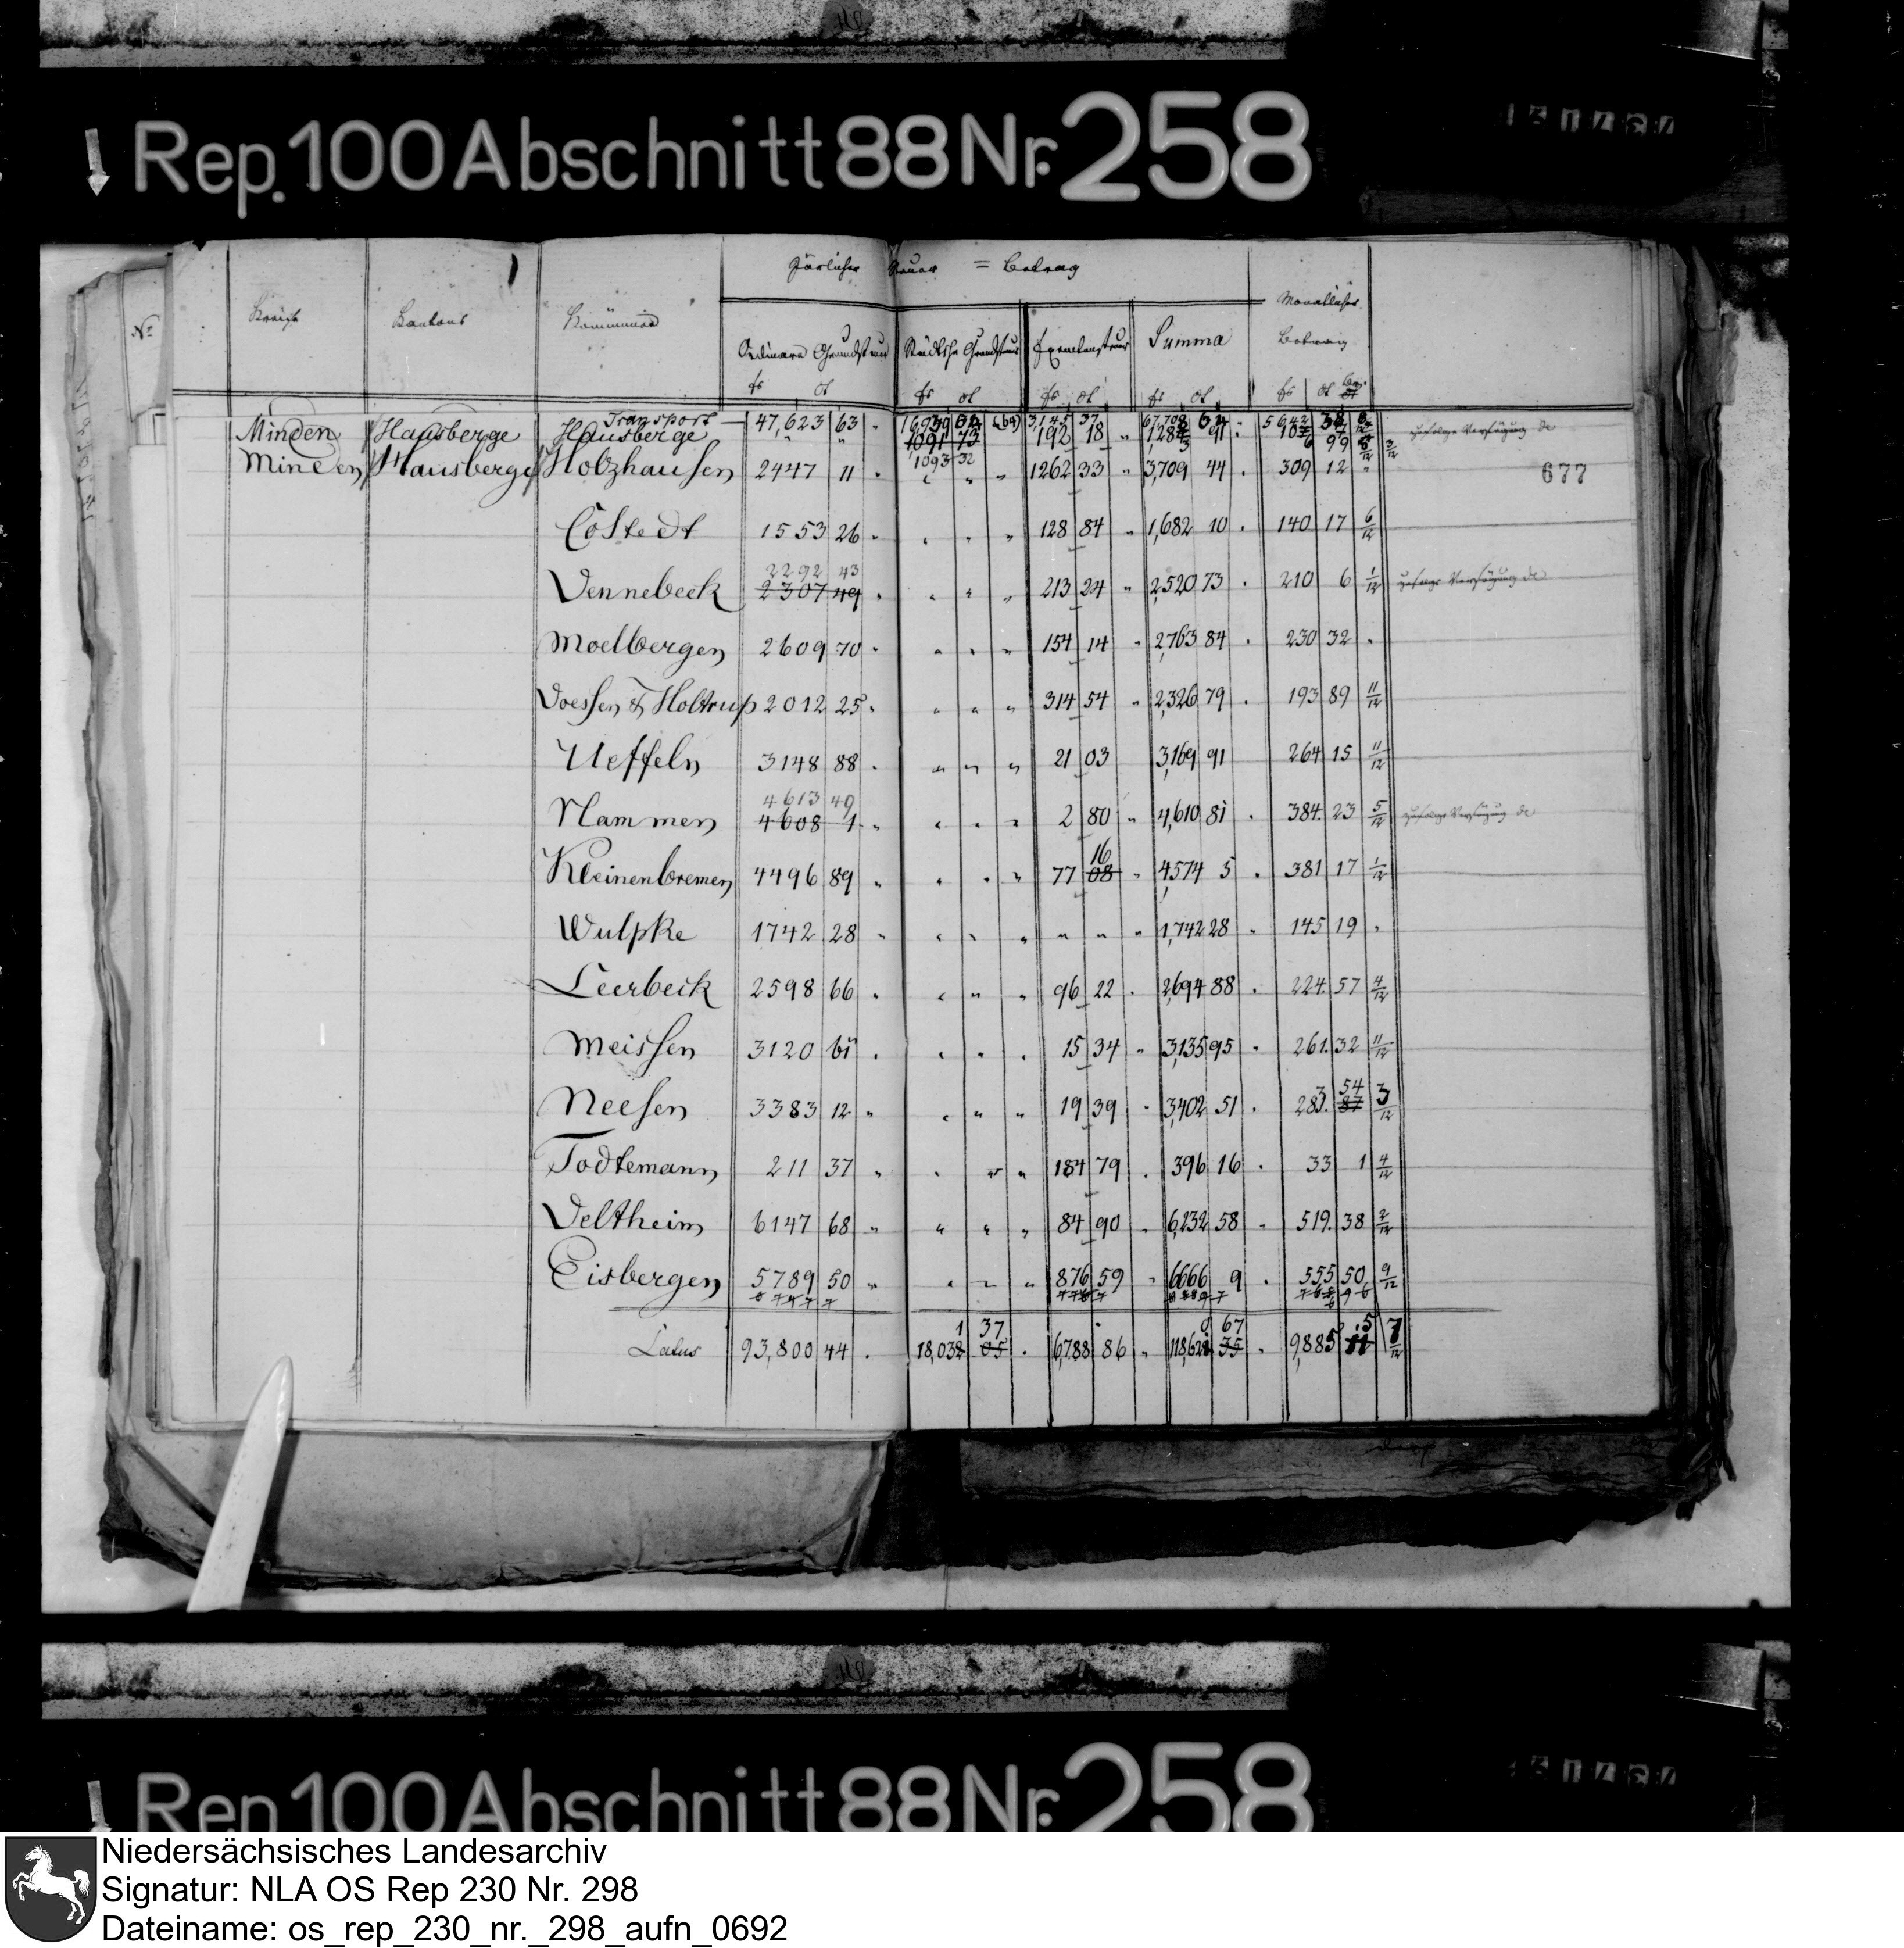 Rep. 100 Abschnitt 88 Nr. 258
Järlicher Steuer = Betrag
No Kreise Kantons Kommunen Ordinare Grundsteuer Städtsche Grundsteuer Exemtensteuer Summa Monatlicher Betrag
fr ct fr ct fr ct fr ct fr ct
Transport 47,623 63 3,145 37
Minden Hausberge Hausberge " " 1091 73 192 18 " 91
1093 32
Minden Hausberge Holzhausen 2447 11 " " " " 1262 33 " 3,709 44 . 309 12 "
677
Costedt 1553 26 " " " " 128 84 " 1,682 10 . 140 17 6/12
2292 43
Vennebeck 2307 49 " " " " 213 24 " 2,520 73 . 210 6 1/12 zufolge Verfügung de
Moelbergen 2609 70 " " " " 154 14 " 2,763 84 . 230 32 "
Voessen & Holtrup 2012 25 " " " " 314 54 " 2,326 79 . 193 89 11/12
Ueffeln 3148 88 . " " " 21 03 3,169 91 264 15 11/12
4613 49
Nammen 4608 1 " " " " 2 80 " 4,610 81 . 384. 23 5/12 zufolge Verfügung de
16
Kleinenbremen 4496 89 " " " " 77 08 " 4574 5 . 381 17 1/12
Wulpke 1742 28 " " " " " " " 1,742 28 " 145 19 "
Leerbeck 2598 66 " " " " 96 22 . 2,694 88 . 224. 57 4/12
Meissen 3120 61 . " " " 15 34 " 3,135 95 " 261. 32 11/12
54
Neesen 3383 12 " " " " 19 39 " 3,402 51 . 283. 87 3/12
Todtemann 211 37 " " " " 184 79 . 396 16 . 33 1 4/12
Veltheim 6147 68 " " " " 84 90 " 6,232 58 " 519. 38 2/12
Eisbergen 5789 50 " " " " 876 59 " 6666 9 . 555 50 9/12
1 37 67
Latus 93,800 44 . 18,032 05 . 6,788 86 " 118,621 35 " 9,885 11 7/12
Rep. 100 Abschnitt 88 Nr. 258
Niedersächsisches Landesarchiv
Signatur: NLA OS Rep 230 Nr. 298
Dateiname: os_rep_230_nr._298_aufn_0692